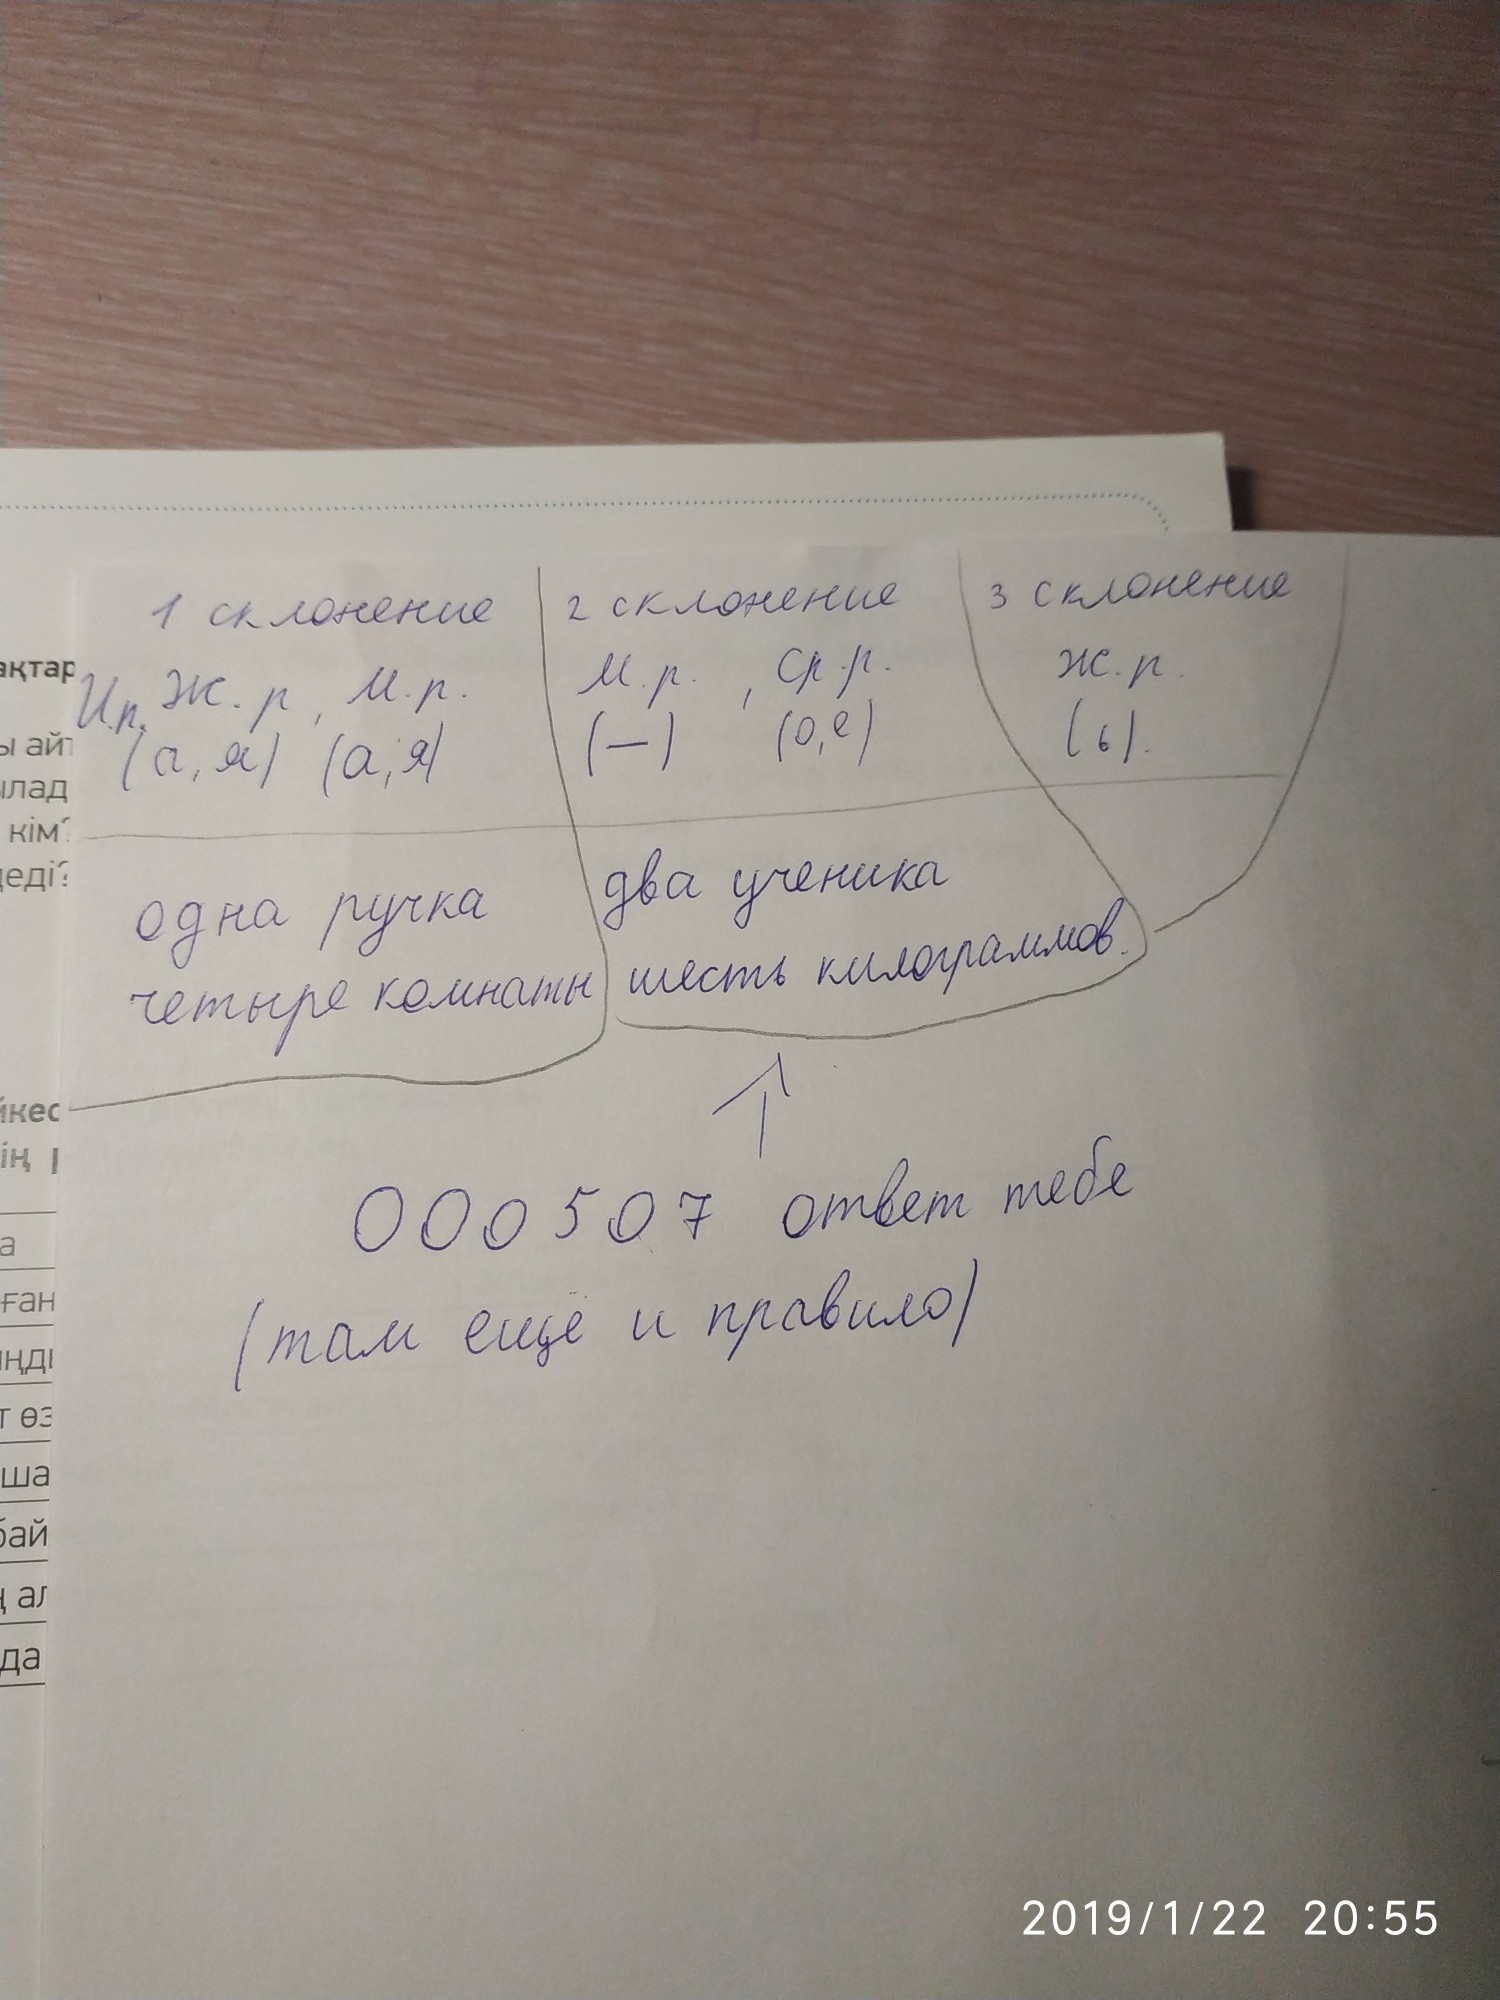 1 склонение
И.п. Ж.р, м.р.
(а, я) (а, я)
одна ручка
четыре комнаты
2 склонение
м.р., ср.р.
(—) (о, е)
два ученика
шесть килограммов.
3 склонение
ж.р.
(ь).
000507 ответ тебе
(там ещё и правило)
ақтар
ы айт
ылад
кім?
деді?
йкес
ің
а
ған
т өз
ша
бай
ң ал
да
2019/1/22 20:55